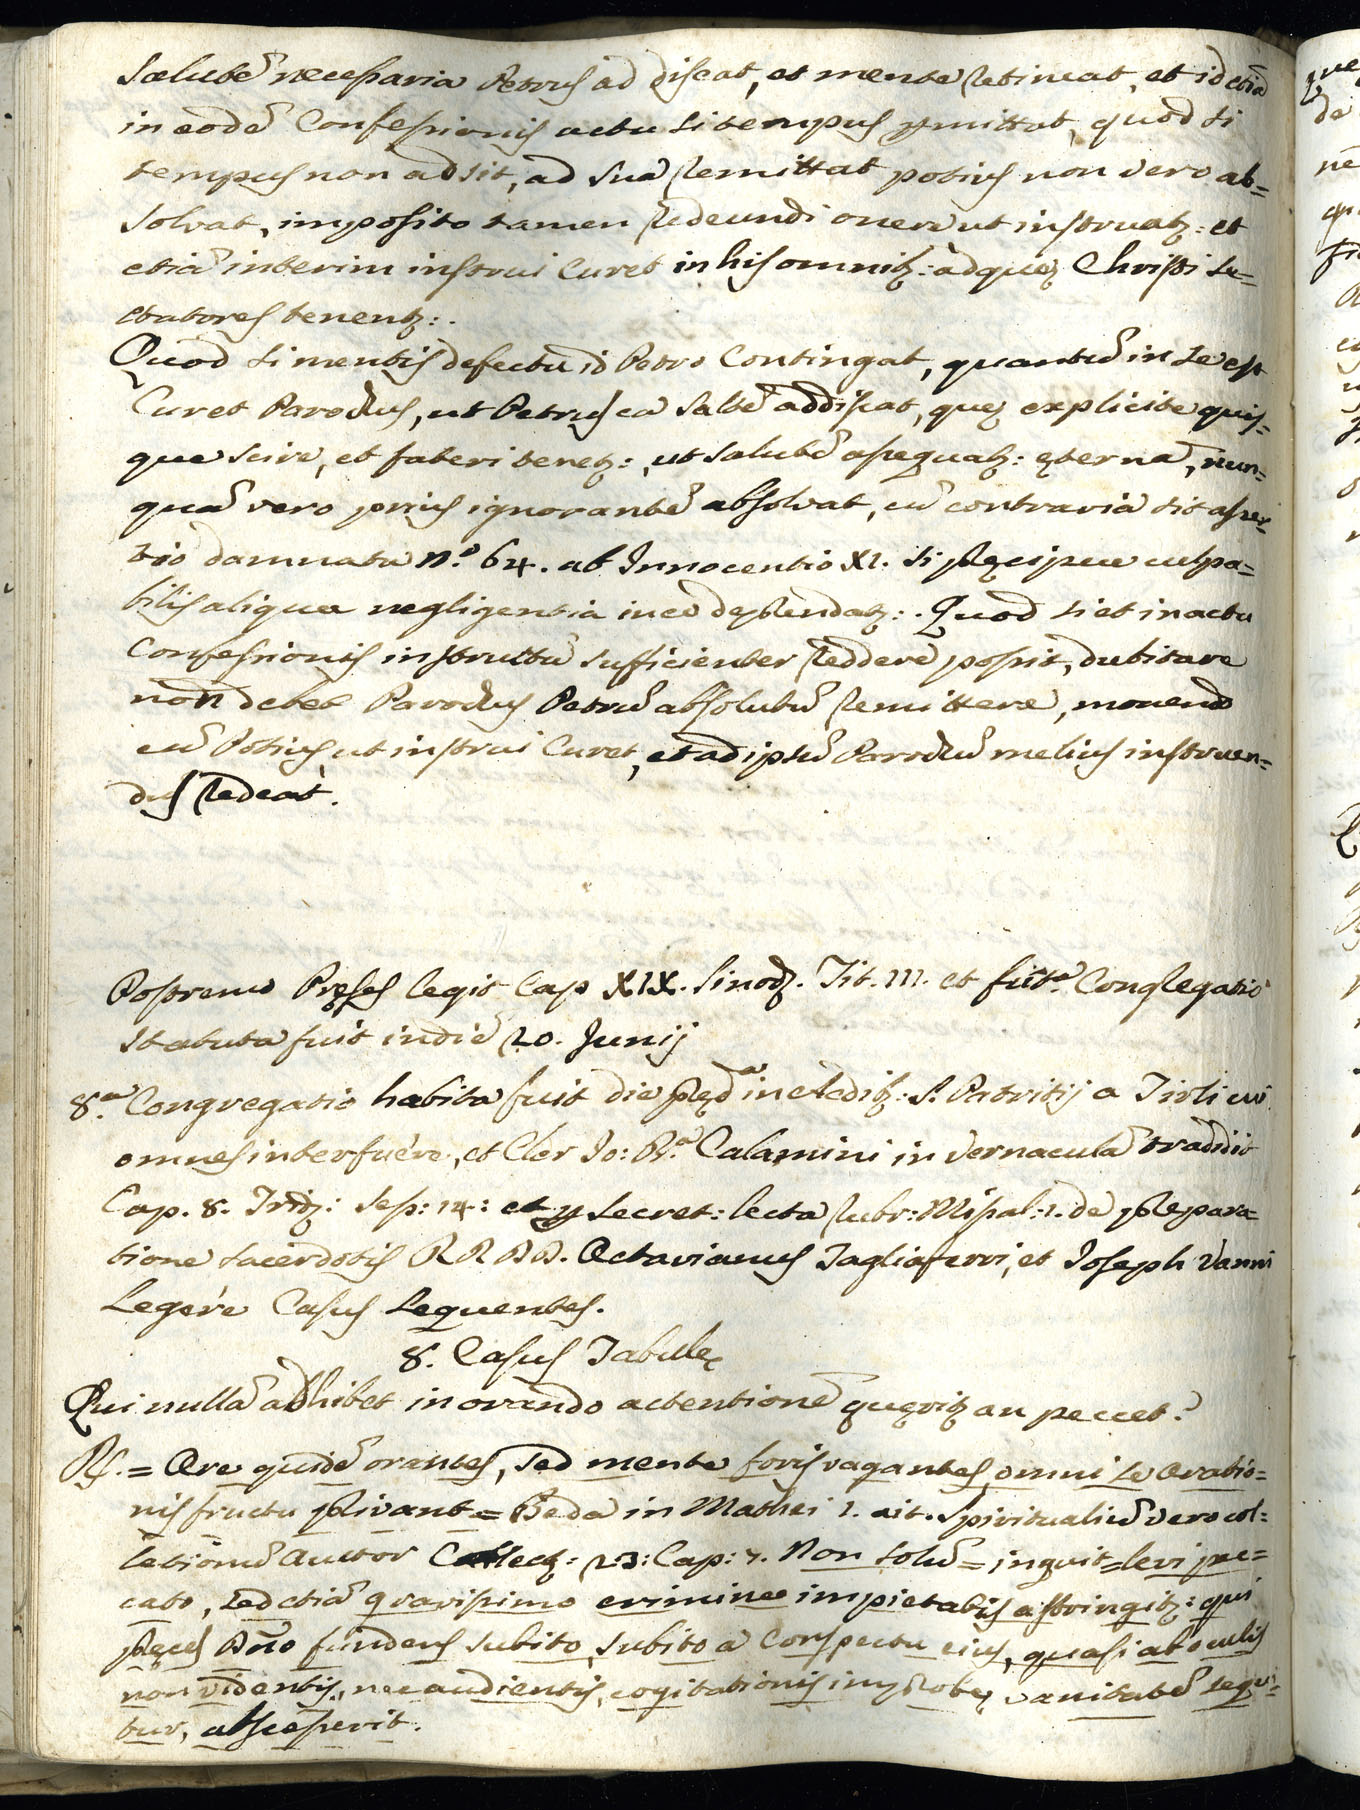 salutẽ necessaria Petrus ad discat, et mente retineat, et id etiã
in eodẽ Confessionis actu si tempus permittat, quod si
tempus non adsit, ad suã remittat potius non vero ab=
solvat, imposito tamen redeundi onere ut instruatq: et
etiã interim instrui curet in his omnibq: ad quę Christi se=
ctatores tenentq:.
Quod si mentis defectu id Petro Contingat, quantũ in se est
Curet Parochus, ut Petrus ea saltẽ addiscat, quę explicite quis=
que scire, et fateri tenetq:, ut salutẽ assequatq: ęternã, nun=
quã vero prius ignorantẽ absolvat, cũ contraria sit asser=
tio damnata n.º 64. ab Innocentio XI. si pręcipue culpa=
bilis aliqua negligentia in eo deprendatq:. Quod si et in actu
Confessionis instructũ sufficienter reddere possit, dubitare
non debet Parochus Petrũ absolutũ remittere, monendo
eũ potius, ut instrui Curet, et ad ipsũ Parochũ melius instruen=
dus redeat.
Postremo Pręses legit Cap XIX. Sinodq. Tit. III. et futª. Congregatio
statuta fuit in die 20. Junij
8.ª Congregatio habita fuit die prędª in Aedibq: S. Patritij a Tirli cui
omnes interfuére, et Cler Jo: Bª. Calamini in vernaculã tradidit
Cap. 8. Tridq: Sess: 14: et per secret: lecta rubr: Missal: 1. de prepara=
tione sacerdotis RR DD. Octavianus Tagliaferri, et Joseph Vanni
Legére Casus sequentes.
8. Casus Tabellę
Qui nullã adhibet in orando actentionẽ quęritq an peccet?
Rs. = Ore quidẽ orantes, sed mente foris vagantes omni se oratio=
nis fructu privant = Beda in Mathei 1. ait. Spiritualiũ vero col=
lationũ Auctor Collectq: 23: Cap: 7. Non solũ = inquit = levi pec=
cato, sed etiã gravissimo crimine impietatis astringitq: qui
pręces Dño fundens subito, subito a conspectu eius, quasi ab oculis
non videntis, nec audientis, cogitationis improbę vanitatẽ sequi=
tur, abscesserit.